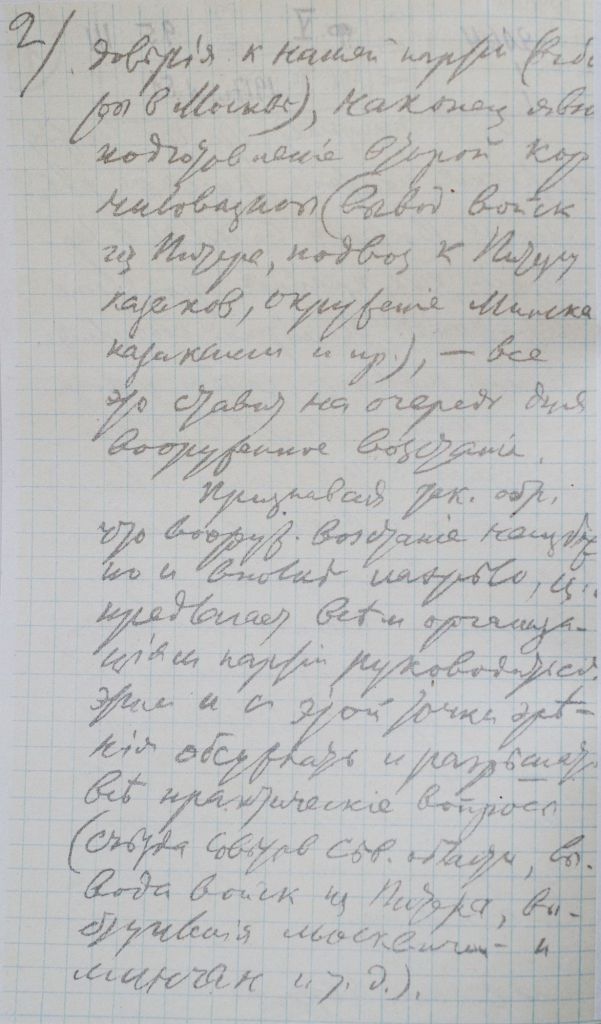 2)
довѣрія к нашей партіи (выбо
ры в Москвѣ), наконец явн
подготовленіе второй кор
ниловщины (вывод войск
из Питера, подвоз к Питеру
казаков, окруженіе Минска
казаками и пр.), — все
это ставит на очередь дня
вооруженное возстаніе.
Признавая так. обр.
что вооруж. возстаніе неизбѣж
но и вполнѣ назрѣло, Ц.
предлагает всѣм организа-
ціям партіи руководиться
этим и с этой точки зрѣ-
нія обсуждать и разрѣшать
всѣ практическіе вопросы
(съѣзда совѣтов Сѣв. области, вы-
вода войск из Питера, вы-
ступленія москвичей и
минчан и т. д.).